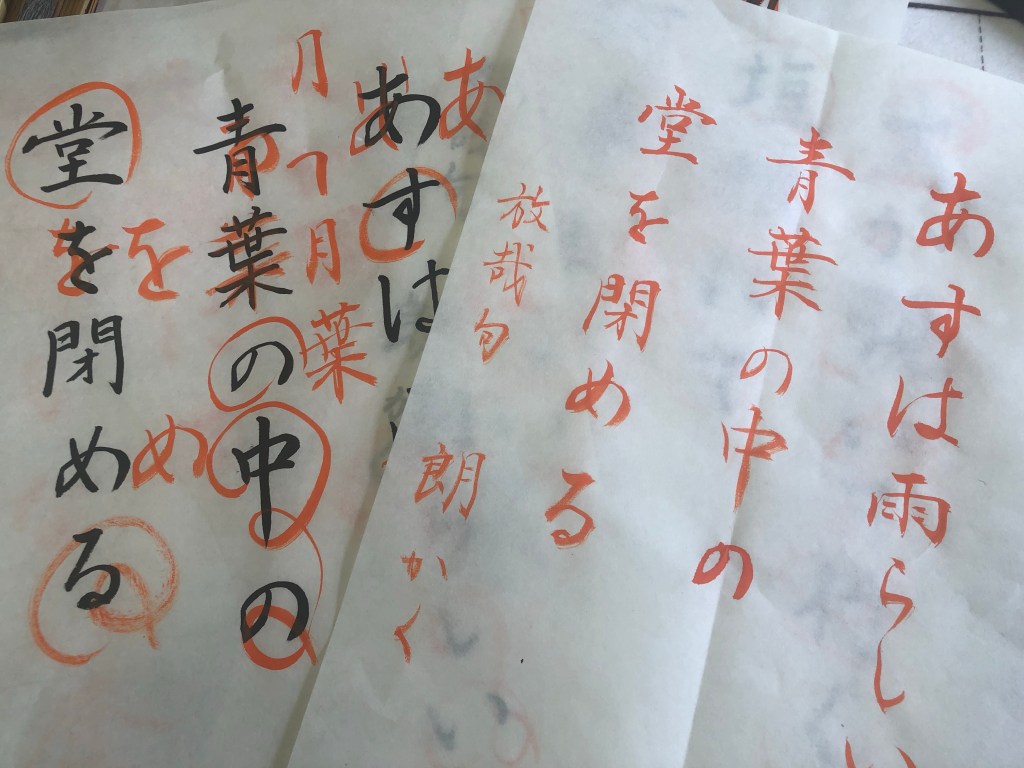 あすは雨らしい
青葉の中の
堂を閉める
放哉句
朗かく
あ
あすは
月
つ
月
葉
青葉の中の
を
め
堂を閉める